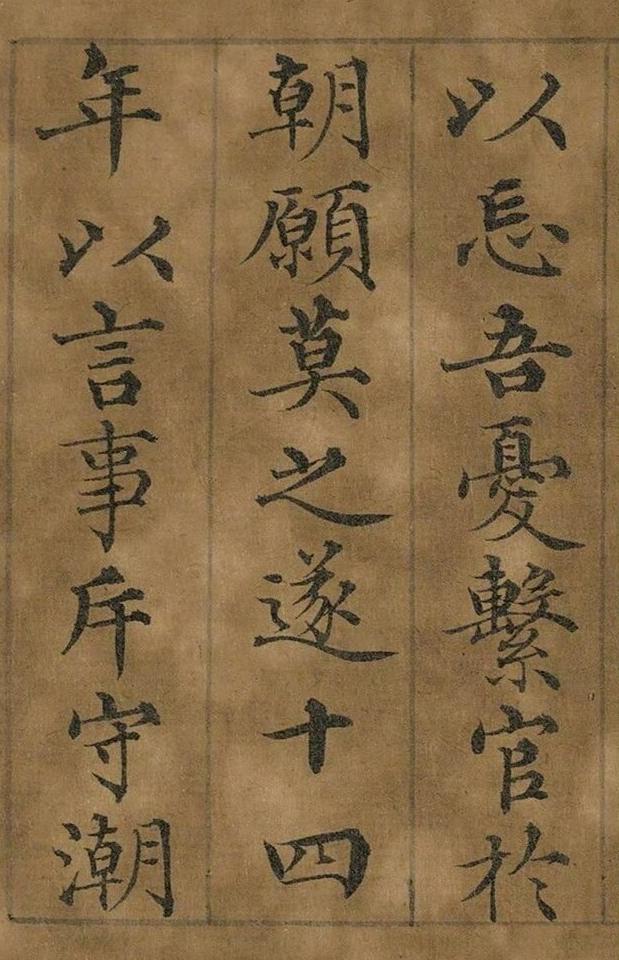 以忘吾憂繫官於
朝願莫之遂十四
年以言事斥守潮